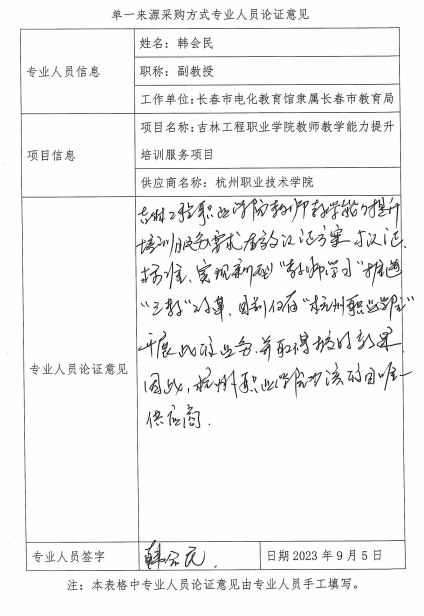 单一来源采购方式专业人员论证意见
专业人员信息
姓名：韩会民
职称：副教授
工作单位：长春市电化教育馆隶属长春市教育局
项目信息
项目名称：吉林工程职业学院教师教学能力提升
培训服务项目
供应商名称：杭州职业技术学院
专业人员论证意见
吉林工程职业学院教师教学能力提升
培训服务要求有效认证方案与认证
标准、实现新型“教师学习”推进
“三教”改革，目前仅有“杭州职业学院”
开展此的业务，并取得较好效果
因此，杭州职业学院为该项目唯一
供应商．
专业人员签字
韩会民．
日期 2023 年 9 月 5 日
注：本表格中专业人员论证意见由专业人员手工填写。